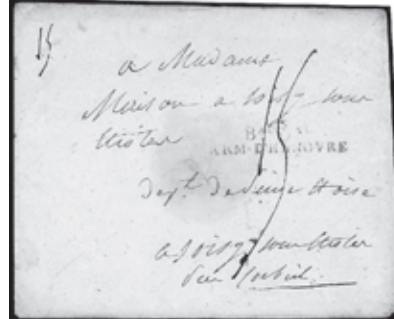 15
a Madame
Moison a soisy sous
Etiolle
Bau Al
ARM. D'HANOVRE
Dept. de Seine et Oise
a Soisy sous Etiolle
Par Corbeil